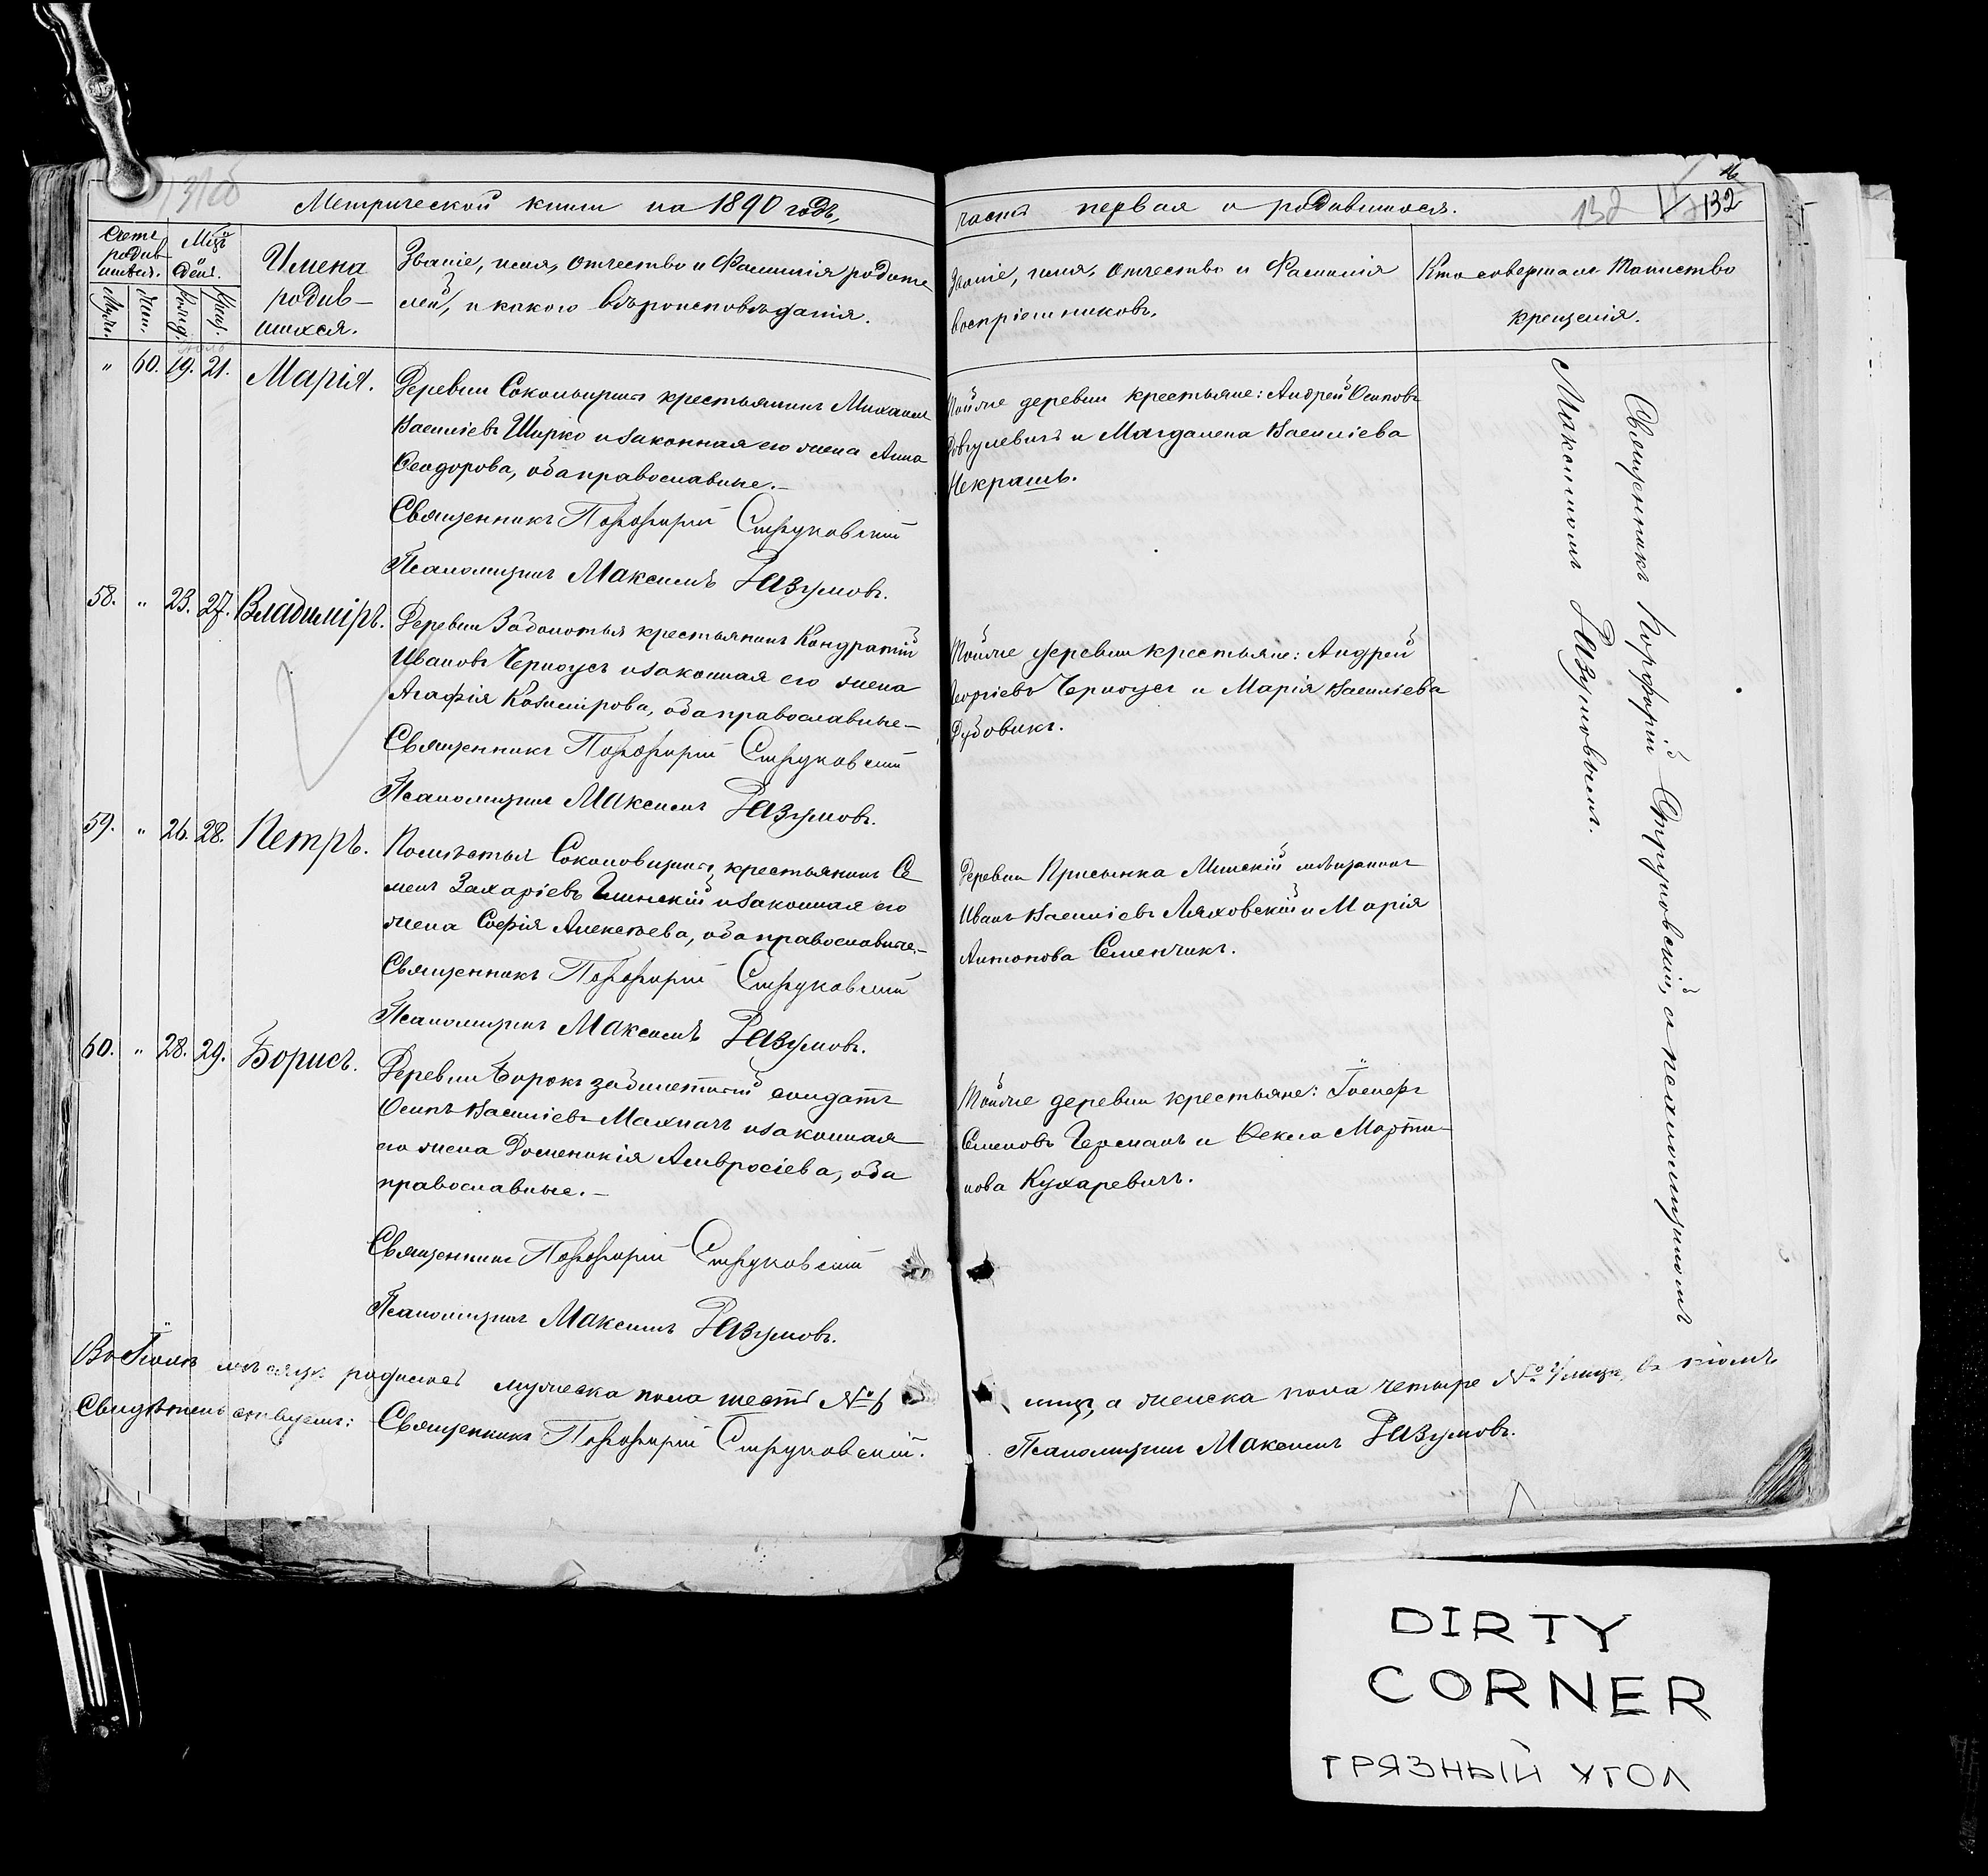 Метрической книги на 1890 годъ,
Счетъ родив-шихся.
Муж.
Жен.
Мѣц. и день.
Рожд.
Крещ.
Имена
родив-
шихся.
Званіе, имя, отчество и фамилія родите
лей, и какого вѣроисповѣданія.
" 60. 19. 21. Марія.
Деревни крестьянинъ Михаилъ
Василіевъ Ширко и законная его жена Анна
Ѳеодорова, оба православные.-
Священникъ Порфирій Струковскій
Псаломщикъ Максимъ Разумовъ.
58. " 23. 27. Владиміръ.
Деревни Заболотья крестьянинъ Кондратій
Ивановъ Черноусъ и законная его жена
Агафія Казимірова, оба православные-
Священникъ Порфирій Струковскій
Псаломщикъ Максимъ Разумовъ.
59. " 26. 28. Петръ.
Помѣстья крестьянинъ Се
менъ Захаріевъ и законная его
жена Софія Алексѣева, оба православные.-
Священникъ Порфирій Струковскій
Псаломщикъ Максимъ Разумовъ.
60. " 28. 29. Борисъ.
Деревни Борокъ забилетный солдатъ
Осипъ Василіевъ Махначъ и законная
его жена Доменикія Амвросіева, оба
православные.-
Священникъ Порфирій Струковскій
Псаломщикъ Максимъ Разумовъ.
Въ Іюлѣ мѣсяцѣ родилось мужеска пола шесть № 6
Свидѣтельствуемъ: Священникъ Порфирій Струковскій.
часть первая о родившихся.
132
132
Званіе, имя, отчество и фамилія
воспріемниковъ.
Кто совершалъ Таинство
крещенія.
Тойже деревни крестьяне: Андрей Осиповъ
Довгулевичъ и Магдалена Василіева
Некрашъ.
Тойже деревни крестьяне: Андрей
Георгіевъ Черноусъ и Марія Василіева
Дубовикъ.
Деревни Присынка Минскій мѣщанинъ
Иванъ Василіевъ Ляховскій и Марія
Антонова Семенчикъ.
Тойже деревни крестьяне: Іосифъ
Семеновъ Германъ и Ѳекла Марти-
нова Кухаревичъ.
Священникъ Порфирій Струковскій, съ псаломщикомъ
Максимомъ Разумовымъ.
а женска пола четыре №
Псаломщикъ Максимъ Разумовъ.
DIRTY
CORNER
ГРЯЗНЫЙ УГОЛ